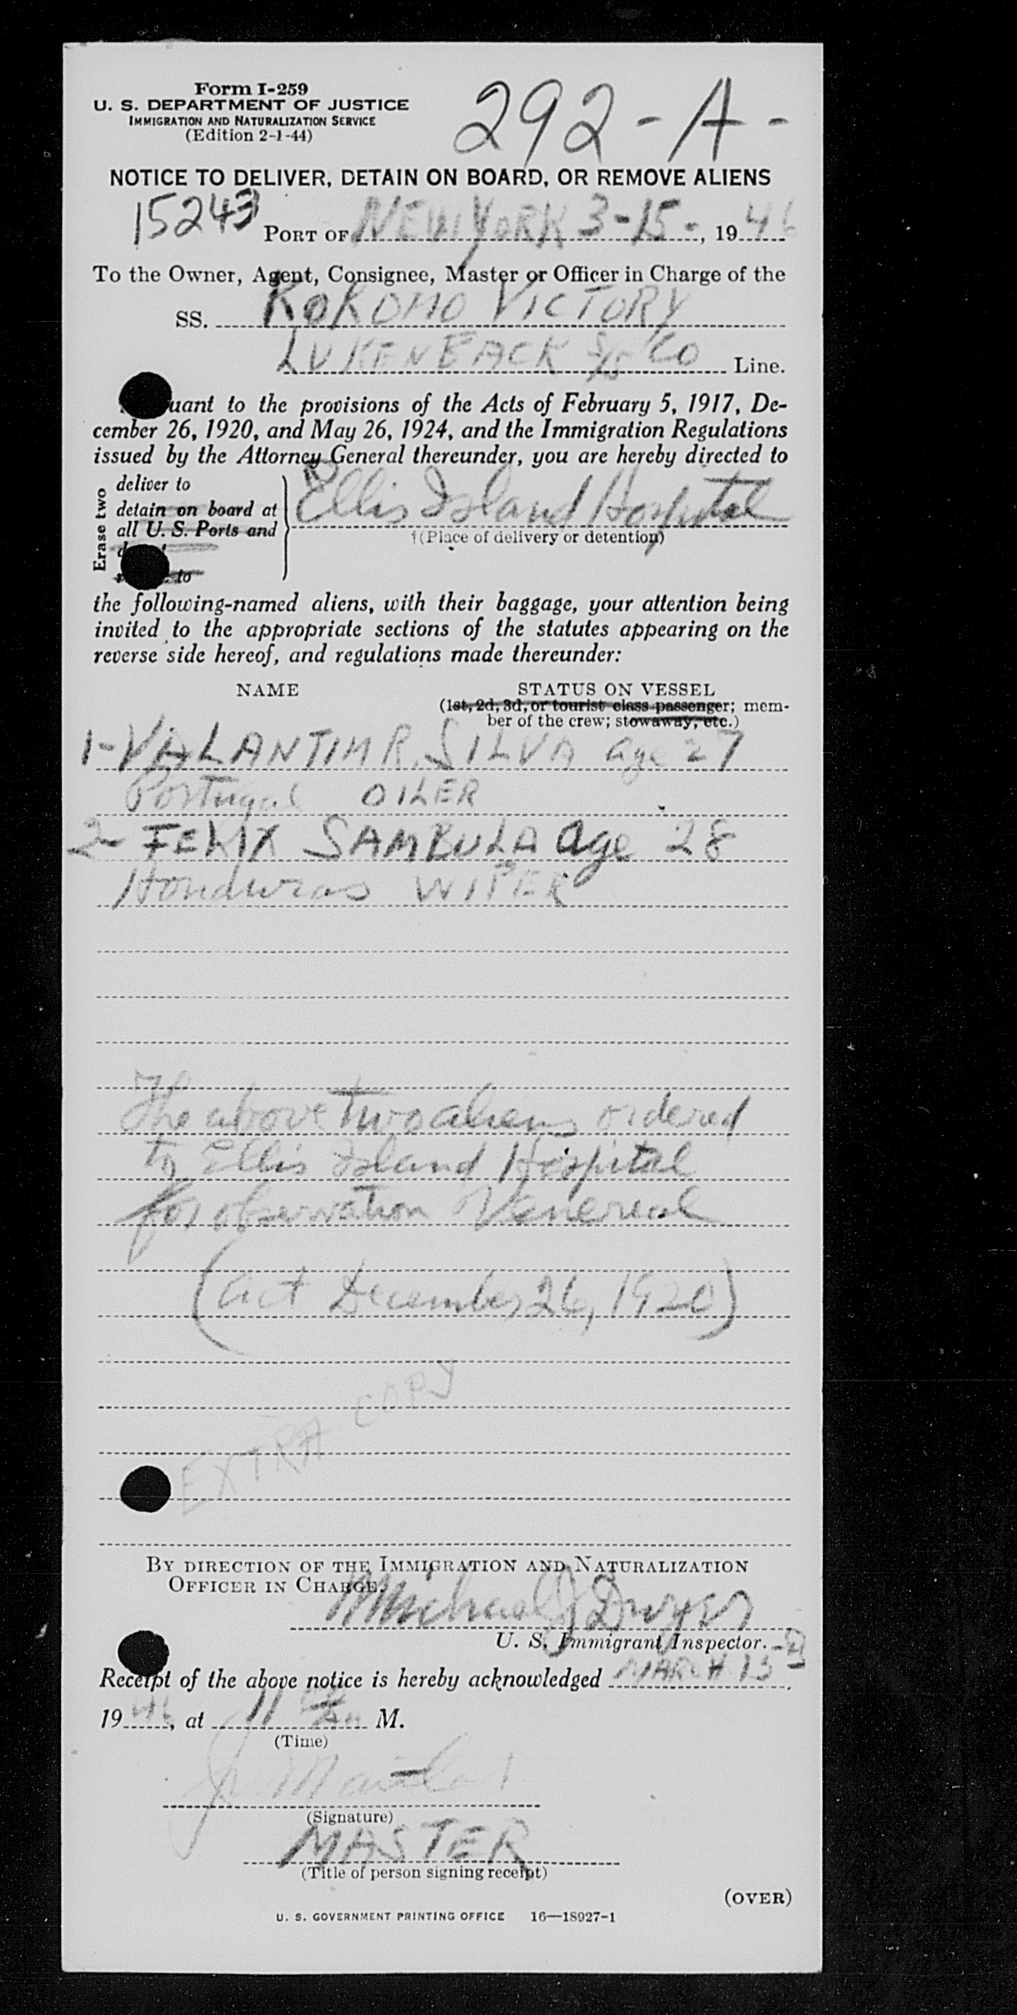 Form I-259
U. S. DEPARTMENT OF JUSTICE
IMMIGRATION AND NATURALIZATION SERVICE
(Edition 2-1-44)
292-A-
NOTICE TO DELIVER, DETAIN ON BOARD, OR REMOVE ALIENS
15243
PORT OF NEW YORK 3-15-, 1946
To the Owner, Agent, Consignee, Master or Officer in Charge of the
SS. KOKOMO VICTORY
LUKENBACK S/S CO Line.
uant to the provisions of the Acts of February 5, 1917, De-
cember 26, 1920, and May 26, 1924, and the Immigration Regulations
issued by the Attorney General thereunder, you are hereby directed to
Erase two
deliver to
detain on board at
all U. S. Ports and
to
Ellis Island Hospital
(Place of delivery or detention)
the following-named aliens, with their baggage, your attention being
invited to the appropriate sections of the statutes appearing on the
reverse side hereof, and regulations made thereunder:
NAME STATUS ON VESSEL
(1st, 2d, 3d, or tourist class passenger; mem-
ber of the crew; stowaway, etc.)
1-VALANTIM R. SILVA age 27
Portugal OILER
2-FELIX SAMBULA age 28
Honduras WIPER
The above two aliens ordered
to Ellis Island Hospital
for observation Venereal
(Act December 26, 1920)
EXTRA COPY
BY DIRECTION OF THE IMMIGRATION AND NATURALIZATION
OFFICER IN CHARGE.
Michael J Dwyer
U. S. Immigrant Inspector.
Receipt of the above notice is hereby acknowledged MARCH 15
1946, at 11 M.
(Time)
(Signature)
MASTER
(Title of person signing receipt)
(OVER)
U. S. GOVERNMENT PRINTING OFFICE 16—18927-1